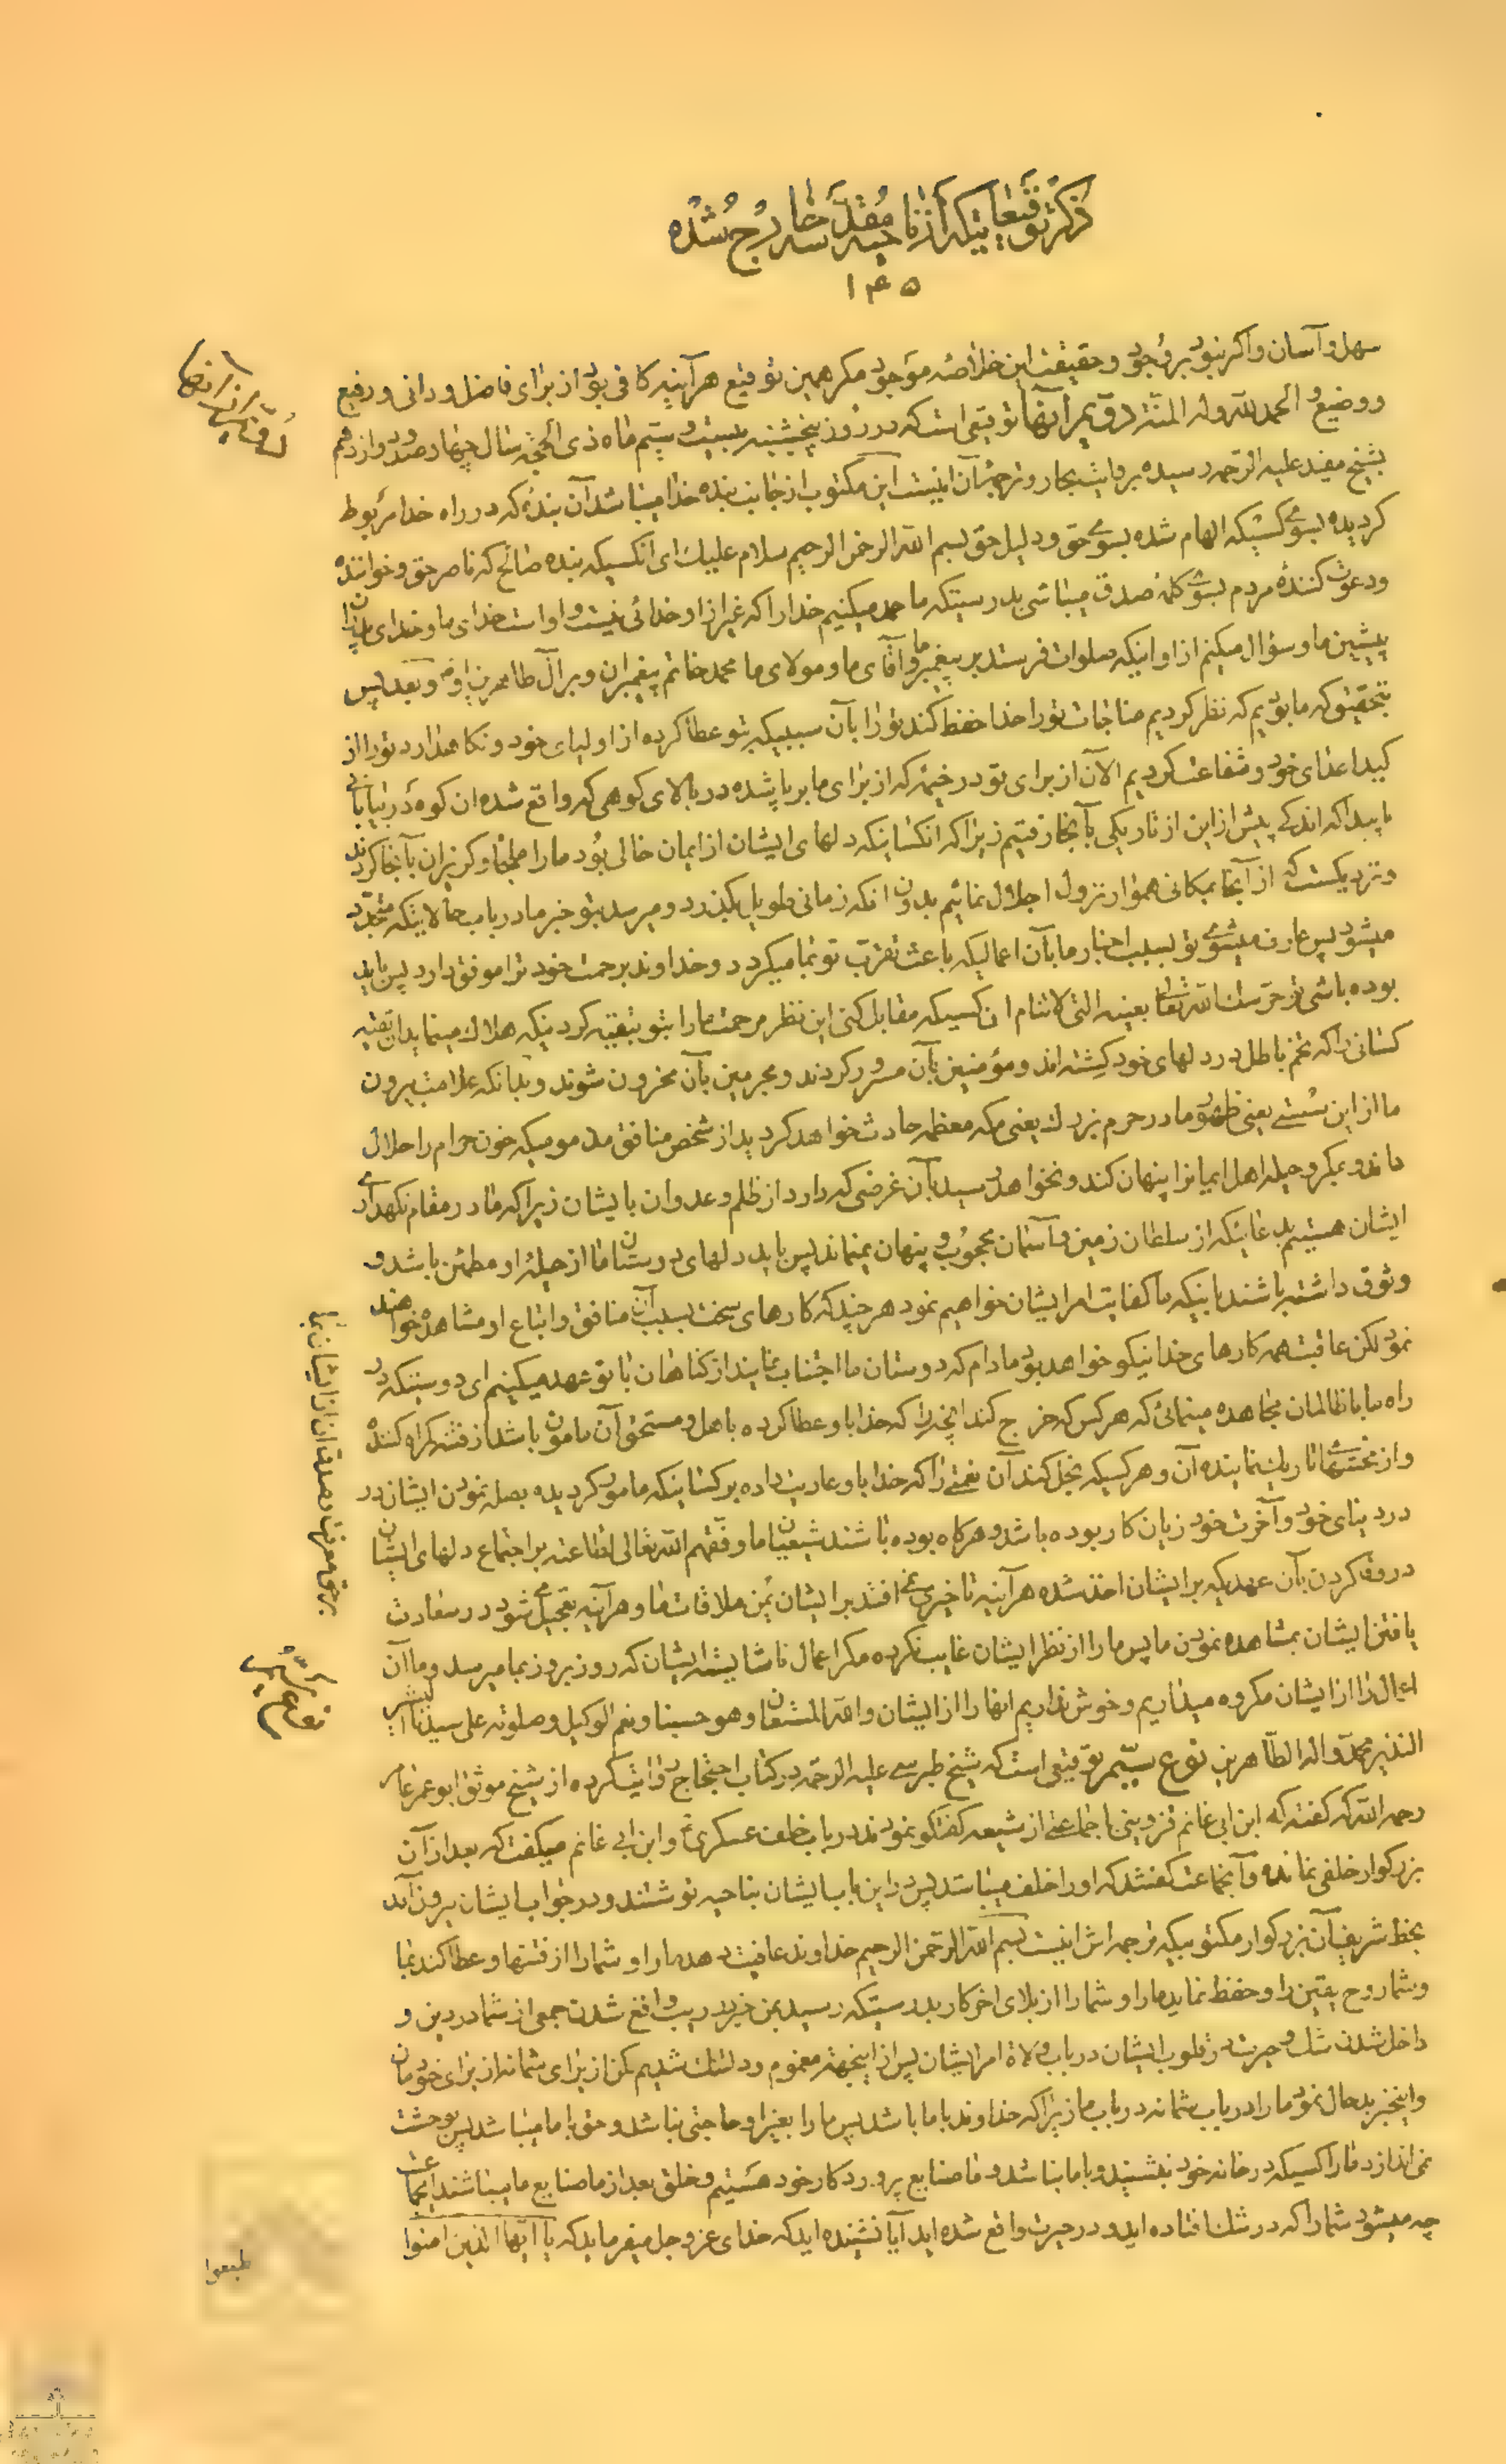 ذکر توقیعاتیکه از ناحیه مقدسه خارج شده
۱۴۵
سهل و آسان و اگر نبود بر وجود و حقیقت این خلاصهٔ موجود مگر همین توقیع هر آینه کافی بود از برای فاضل و دانی و رفیع
و وضیع و الحمد لله وله المنّة دویم از آنها توقیعی است که در روز پنجشنبه بیست و سیّم ماه ذی الحجّه سال چهارصد و دوازدهم
بشیخ مفید علیه الرّحمه رسیده بروایت بحار و ترجمهٔ آن اینست این مکتوب از جانب بندهٔ خدا میباشد آن بندهٔ که در راه خدا مربوط
گردیده بسوی کسیکه الهام شده بسوی حق و دلیل حق بسم الله الرحمن الرحیم سلام علیك ای آنکسیکه بنده صالح که ناصر حق و خواننده
و دعوت کنندهٔ مردم بسوی کلمهٔ صدق میباشی بدرستیکه ما حمد میکنیم خدا را که غیر از او خدائی نیست و اوست خدای ما و خدای پدران
پیشین ما و سؤال میکنم از او اینکه صلوات فرستد بر پیغمبر ما و آقای ما و مولای ما محمد خاتم پیغمبران و بر آل طاهرین او و بعد پس
بتحقیق که ما بودیم که نظر کردیم مناجات تو را خدا حفظ کند تو را بآن سببیکه بتو عطا کرده از اولیای خود و نگاهدارد تو را از
کید اعدای خود و شفاعت کردیم الآن از برای تو در خیمهٔ که از برای ما برپا شده در بالای کوهی که واقع شده ان کوه در بیابانی
ناپیدا که اندکی پیش از این از تاریکی بآنجا رفتیم زیرا که انکسانیکه دلهای ایشان از ایمان خالی بود ما را ملجأ و گریزان بآنجا کردند
و نزدیکست که از آنجا بمکانی هموار نزول اجلال نمائیم بدون انکه زمانی طویل بگذرد و میرسد بتو خبر ما در باب حالاتیکه متجدّد
میشود پس عارف میشوی تو بسبب اخبار ما بآن اعمالیکه باعث تقرّب تو بما میگردد و خداوند برحمت خود ترا موفق دارد پس باید
بوده باشی تو حرسك الله تعالی بعینه التی لاتنام ان کسیکه مقابل کنی این نظر مرحمت ما را بتو بتقیّه کردنیکه هلاك مینماید ان تقیه
کسانی را که تخم باطل در دلهای خود کِشته اند و مؤمنین بآن مسرور گردند و مجرمین بآن محزون شوند و بدانکه علامت بیرون
ما از این سستی یعنی ظهور ما در حرم بزرك یعنی مکه معظمه حادثه خواهد گردید از شخص منافق مذمومیکه خون حرام را حلال
داند و بمکر و حیله اهل ایمانرا پنهان کند و نخواهد رسید بآن غرضی که دارد از ظلم و عدوان بایشان زیرا که ما در مقام نگهداری
ایشان هستیم بدعائیکه از سلطان زمین و آسمان محجوب و پنهان نمیماند پس باید دلهای دوستان ما از حیلهٔ او مطمئن باشد و
وثوق داشته باشند باینکه ما کفایت امر ایشان خواهیم نمود هر چند که کارهای سخت بسبب آن منافق و اتباع او مشاهده خواهند
نمود لکن عاقبت همه کارهای خدا نیکو خواهد بود مادام که دوستان ما اجتناب نمایند از گناهان با تو عهد میکنیم ای دوستیکه در
راه ما با ظالمان مجاهده مینمائی که هر کس که خرج کند آنچه را که خدا باو عطا کرده باهل و مستحق آن مامون باشد از فتنه گمراه کننده
و از محنتهای تاریك نماینده آن و هر کسیکه بخل کند آن نعمتی را که خدا باو عاریت داده بر کسانیکه مامور گردیده بصله نمودن ایشان در
در دنیای خود و آخرت خود زیان کار بوده باشد و هرگاه بوده باشند شیعیان ما وفّقهم الله تعالی لطاعته بر اجتماع دلهای ایشان
در وفا کردن بآن عهدیکه بر ایشان اخذ شده هر آینه تاخیر نمی افتد بر ایشان یُمن ملاقات ما و هر آینه تعجیل می شود در سعادت
یافتن ایشان بمشاهده نمودن ما پس ما را از نظر ایشان غایب نکرده مگر اعمال ناشایسته ایشان که روز بروز بما میرسد و ما آن
اعمال را از ایشان مکروه میداریم و خوش نداریم انها را از ایشان والله المستعان و هو حسبنا و نعم الوکیل و صلوته علی سیدنا البشیر
النذیر محمد و اله الطّاهرین نوع سیّم توقیعی است که شیخ طبرسی علیه الرحمه در کتاب احتجاج روایت کرده از شیخ موثق ابو عمر عامری
رحمه الله که گفته که ابن ابی غانم قزوینی با جماعتی از شیعه گفتگو نمودند در باب خلف عسکری ع و ابن ابی غانم میگفت که بعد از آن
بزرگوار خلفی نمانده و آنجماعت گفتند که او را خلف میباشد پس در این باب ایشان بناحیه نوشتند و در جواب ایشان بیرون آمد
بخط شریف آن بزرگوار مکتوبیکه ترجمه اش اینست بسم الله الرحمن الرحیم خداوند عافیت دهد ما را و شما را از فتنها و عطا کند بما
و شما روح یقین را و حفظ نماید ما را و شما را از بلای اخر کار بدرستیکه رسید بمن خبر ریب واقع شدن جمعی از شما در دین و
داخل شدن شك و حیرت در قلوب ایشان در باب ولاة امر ایشان پس از اینجهة مغموم و دلتنك شدیم لکن از برای شما نه از برای خودمان
و اینخبر بدحال نمود ما را در باب شما نه در باب ما زیرا که خداوند با ما باشد پس ما را بغیر او حاجتی نباشد و حق با ما میباشد پس بوحشت
نمی اندازد ما را کسیکه در خانه خود بنشیند و با ما نباشد و ما صنایع پروردگار خود هستیم و خلق بعد از ما صنایع ما میباشند ایجماعت
چه میشود شما را که در شك افتاده اید و در حیرت واقع شده اید آیا نشنیده اید که خدای عزوجل میفرماید که یا ایّها الذین امنوا
دویم از آنها
نوع سیّم
طیعوا